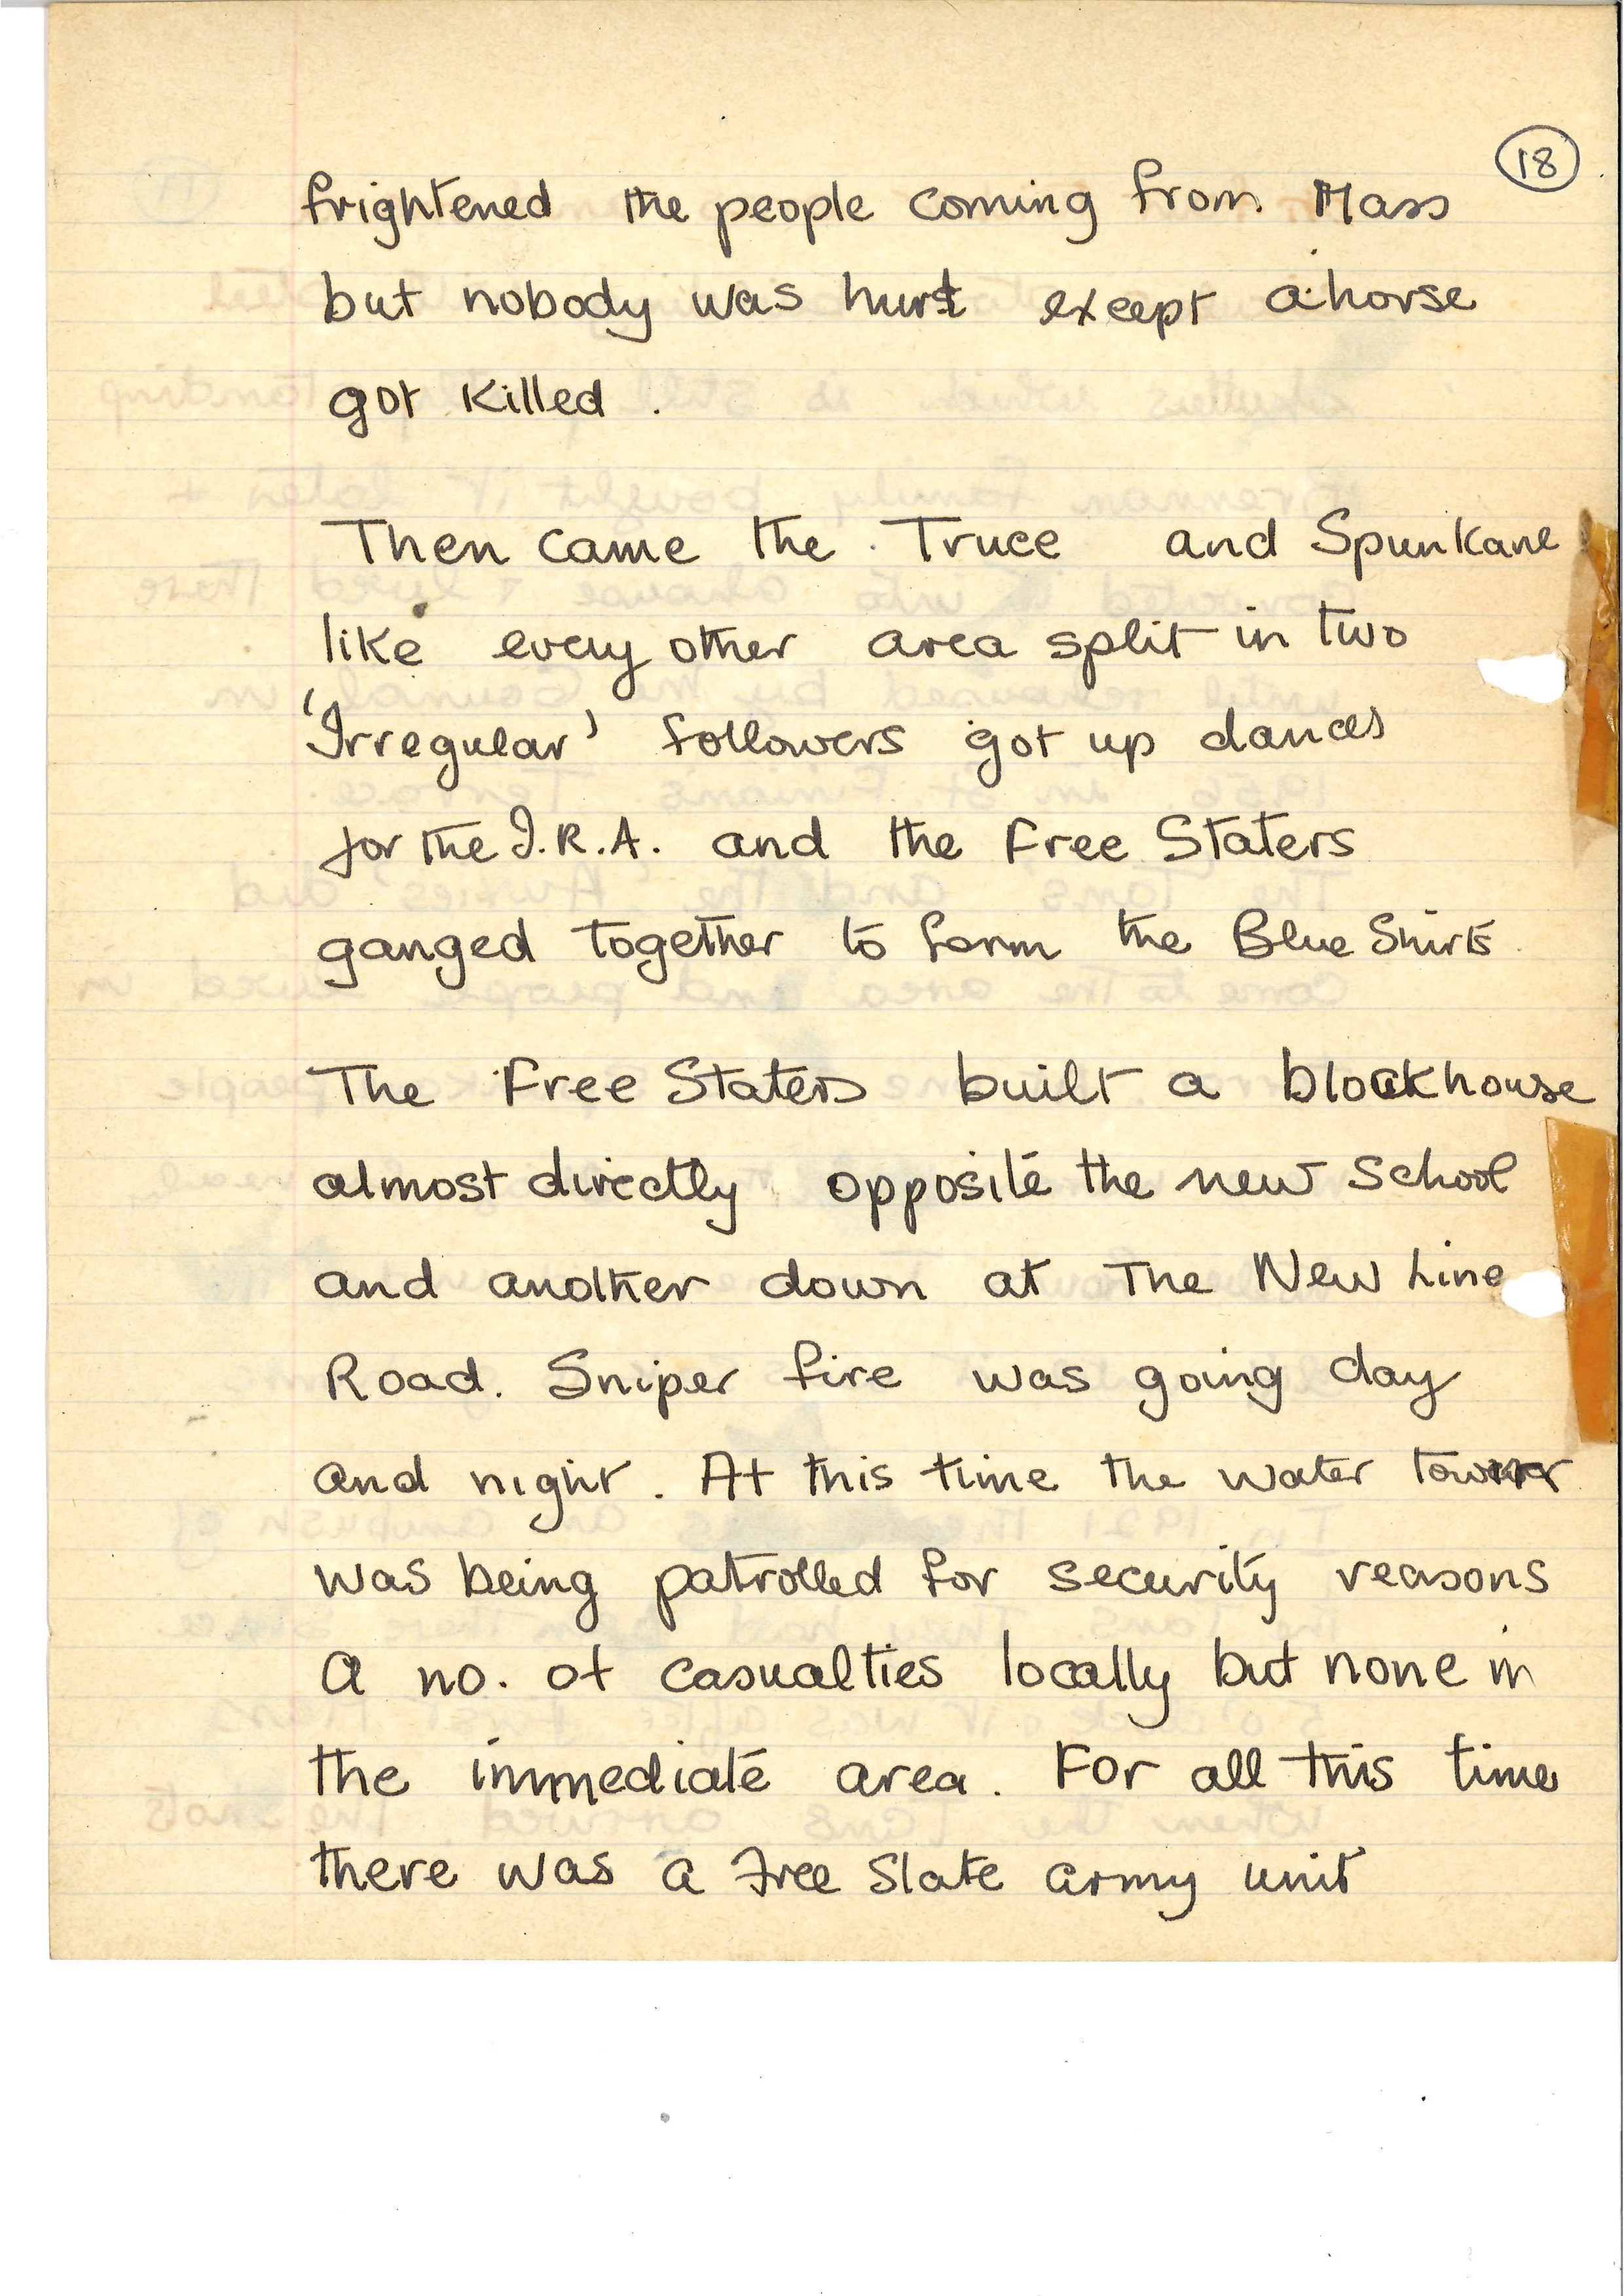 18
frightened the people coming from Mass
but nobody was hurt except a horse
got killed.
Then came the Truce and Spunkane
like every other area split in two
'Irregular' followers got up dances
for the I.R.A. and the Free Staters
ganged together to form the Blue Shirts
The Free Staters built a blockhouse
almost directly opposite the new School
and another down at The New Line
Road. Sniper fire was going day
and night. At this time the water tower
was being patrolled for security reasons
A no. of casualties locally but none in
the immediate area. For all this time
there was a Free State army unit